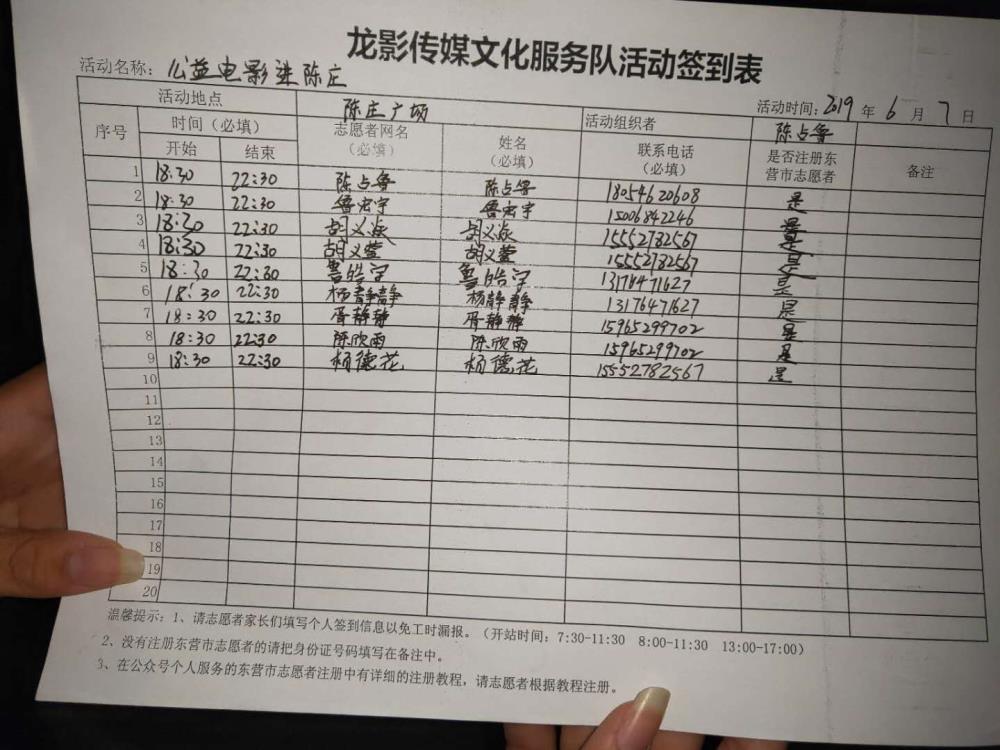 龙影传媒文化服务队活动签到表
活动名称: 公益电影进陈庄
活动时间: 2019 年 6 月 7 日
活动地点 陈庄广场 活动组织者 陈占鲁
序号 时间（必填） 志愿者网名（必填） 姓名（必填） 联系电话（必填） 是否注册东营市志愿者 备注
开始 结束
1 18:30 22:30 陈占鲁 陈占鲁 18054620608 是
2 18:30 22:30 鲁宏宇 鲁宏宇 15006842246 是
3 18:30 22:30 胡义焱 胡义焱 15552782567 是
4 18:30 22:30 胡义萱 胡义萱 15552782567 是
5 18:30 22:30 鲁皓宇 鲁皓宇 13176471627 是
6 18:30 22:30 杨静静 杨静静 13176471627 是
7 18:30 22:30 胥静静 胥静静 15965299702 是
8 18:30 22:30 陈欣雨 陈欣雨 15965299702 是
9 18:30 22:30 杨德花 杨德花 15552782567 是
10
11
12
13
14
15
16
17
18
19
20
温馨提示: 1、请志愿者家长们填写个人签到信息以免工时漏报。（开站时间: 7:30-11:30 8:00-11:30 13:00-17:00）
2、没有注册东营市志愿者的请把身份证号码填写在备注中。
3、在公众号个人服务的东营市志愿者注册中有详细的注册教程，请志愿者根据教程注册。